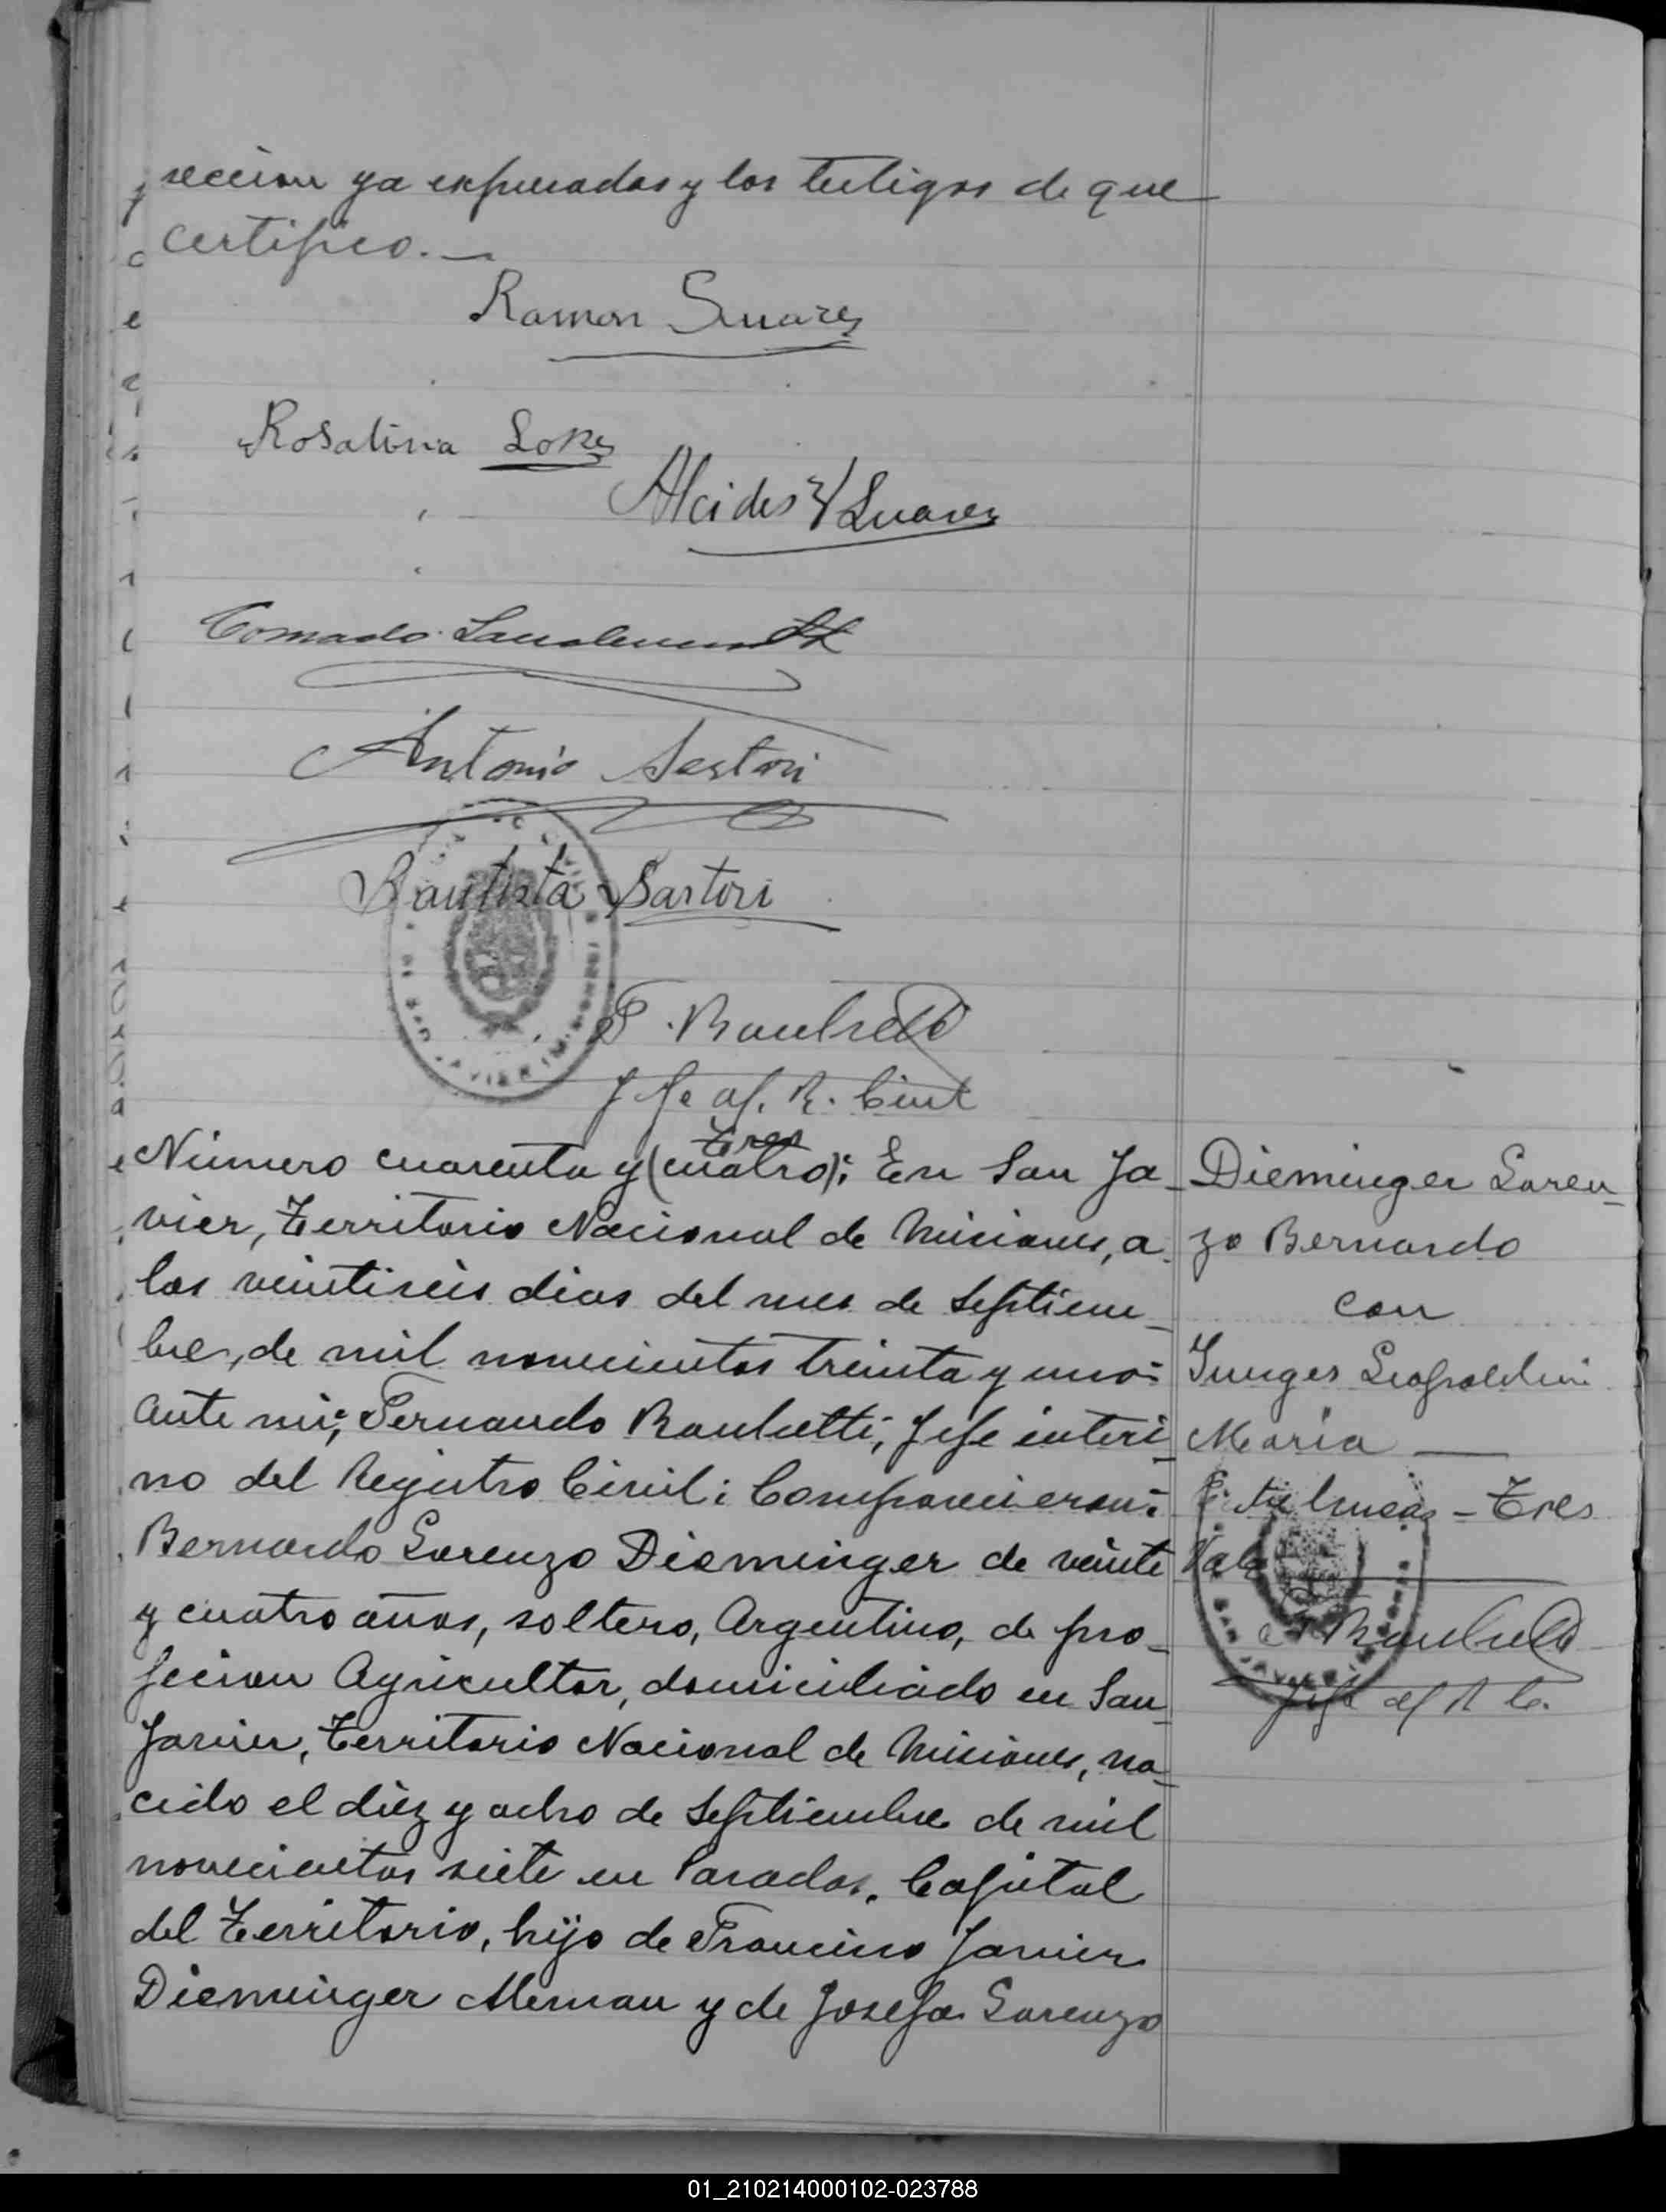 seccion ya expresadas y los testigos de que
certifico.—
Ramon Suarez
Rosalina Lopez
Alcides Suarez
Antonio Sartori
Bautista Sartori
F. Raubetti
Jefe of. R. Civil
Número cuarenta y (cuatro): En San Ja-
Tres
vier, Territorio Nacional de Misiones, a
los veintiseis dias del mes de Septiem-
bre, de mil novecientos treinta y uno:
Ante mi; Fernando Raubetti, Jefe interi-
no del Registro Civil: Comparecieron:
Bernardo Lorenzo Dieminger de veinte
y cuatro años, soltero, Argentino, de pro-
fecion Agricultor, domiciliado en San
Javier, Territorio Nacional de Misiones, na-
cido el diez y ocho de Septiembre de mil
novecientos siete en Posadas, Capital
del Territorio, hijo de Francisco Javier
Dieminger Aleman y de Josefa Lorenzo
Dieminger Loren-
zo Bernardo
con
Junges Leopoldina
Maria —
Entre lineas - Tres
Vale
F. Raubetti
Jefe of R C.
SAN JAVIER (MISIONES)
01_210214000102-023788